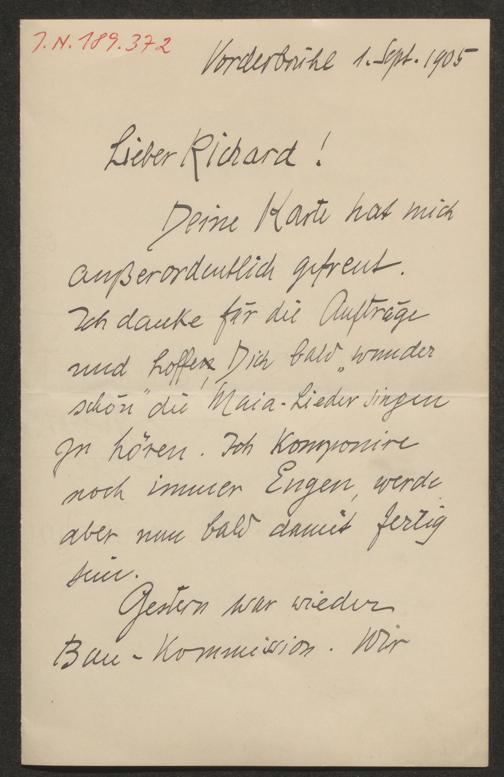 I. N. 189.372
Vorderbrühl 1. Sept. 1905
Lieber Richard!
Deine Karte hat mich
außerordentlich gefreut.
Ich danke für die Aufträge
und hoffe, Dich bald „wunder
schön" die Maia-Lieder singen
zu hören. Ich komponire
noch immer Eugen, werde
aber nun bald damit fertig
sein.
Gestern war wieder
Bau-Kommission. Wir